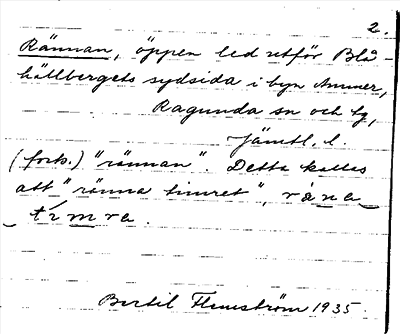 2.
Rännan, öppen led utför Blå-
hällbergets sydsida i byn Ammer,
Ragunda sn och tg,
Jämtl. l.
(forts.) "rännan". Detta kallas
att "ränna timret", räna
timra.
Bertil Flemström 1935.